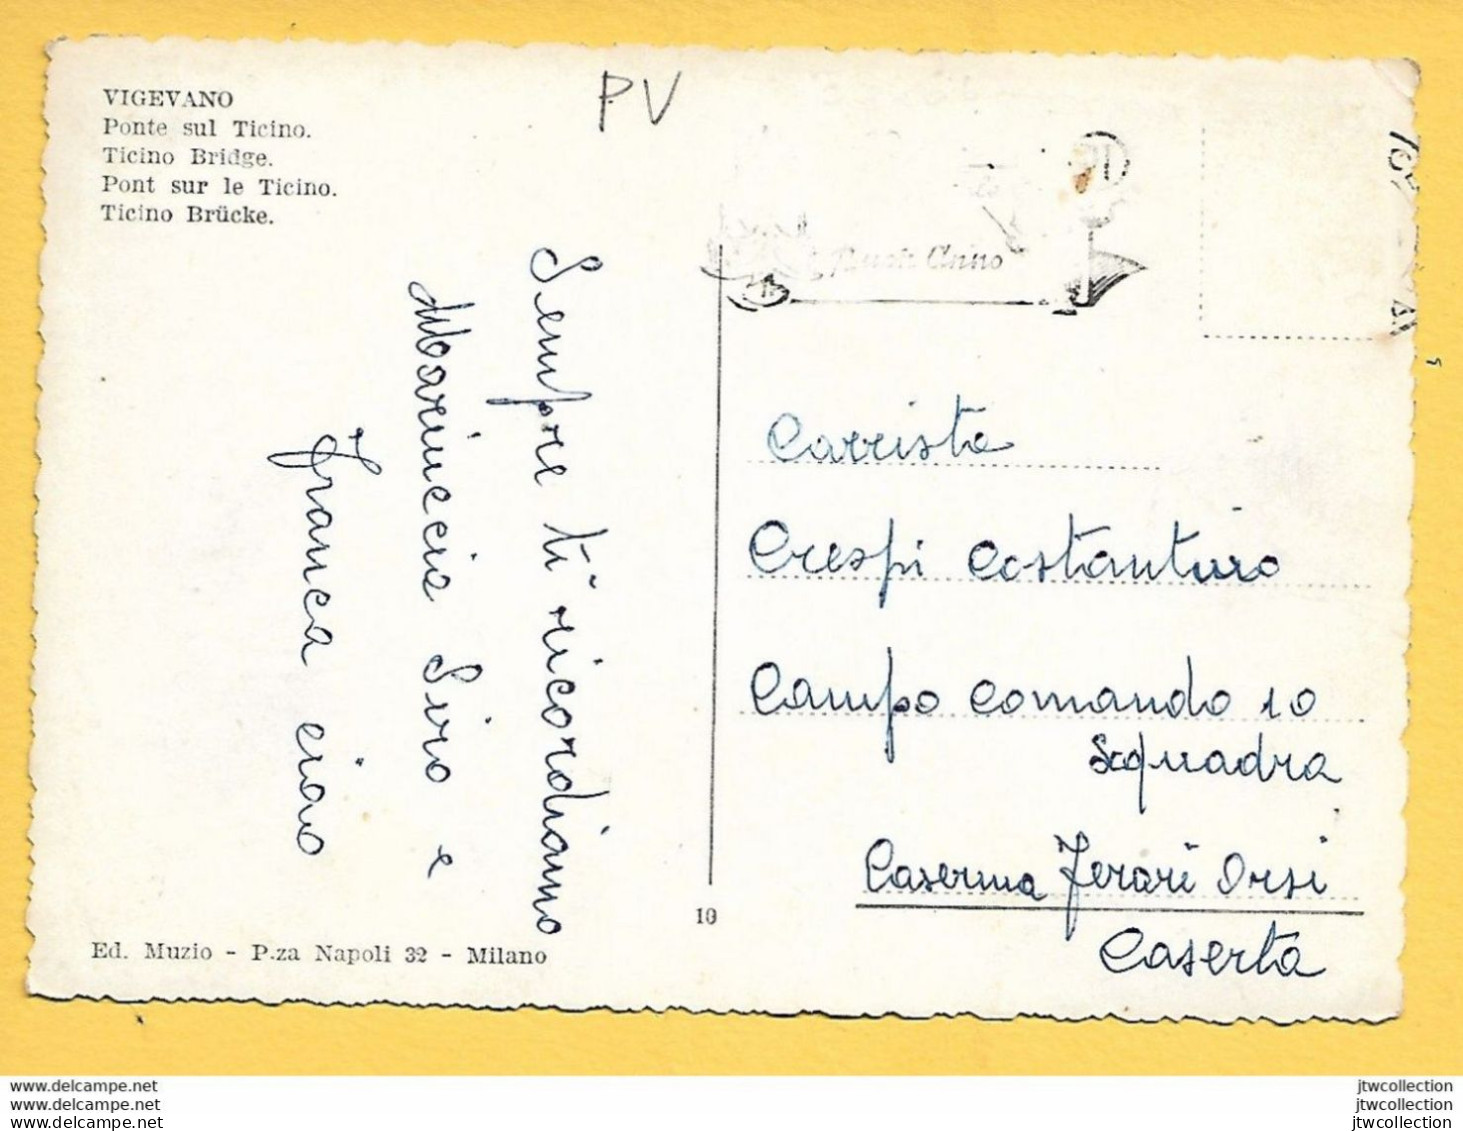 VIGEVANO
Ponte sul Ticino.
Ticino Bridge.
Pont sur le Ticino.
Ticino Brücke.
PV
Anno
Sempre ti ricordiamo
Mariuccia Siro e
Franca ciao
Carrista
Crespi Costantino
Campo Comando 10
Squadra
Caserma Ferari Orsi
Caserta
10
Ed. Muzio - P.za Napoli 32 - Milano
www.delcampe.net
www.delcampe.net
www.delcampe.net
jtwcollection
jtwcollection
jtwcollection